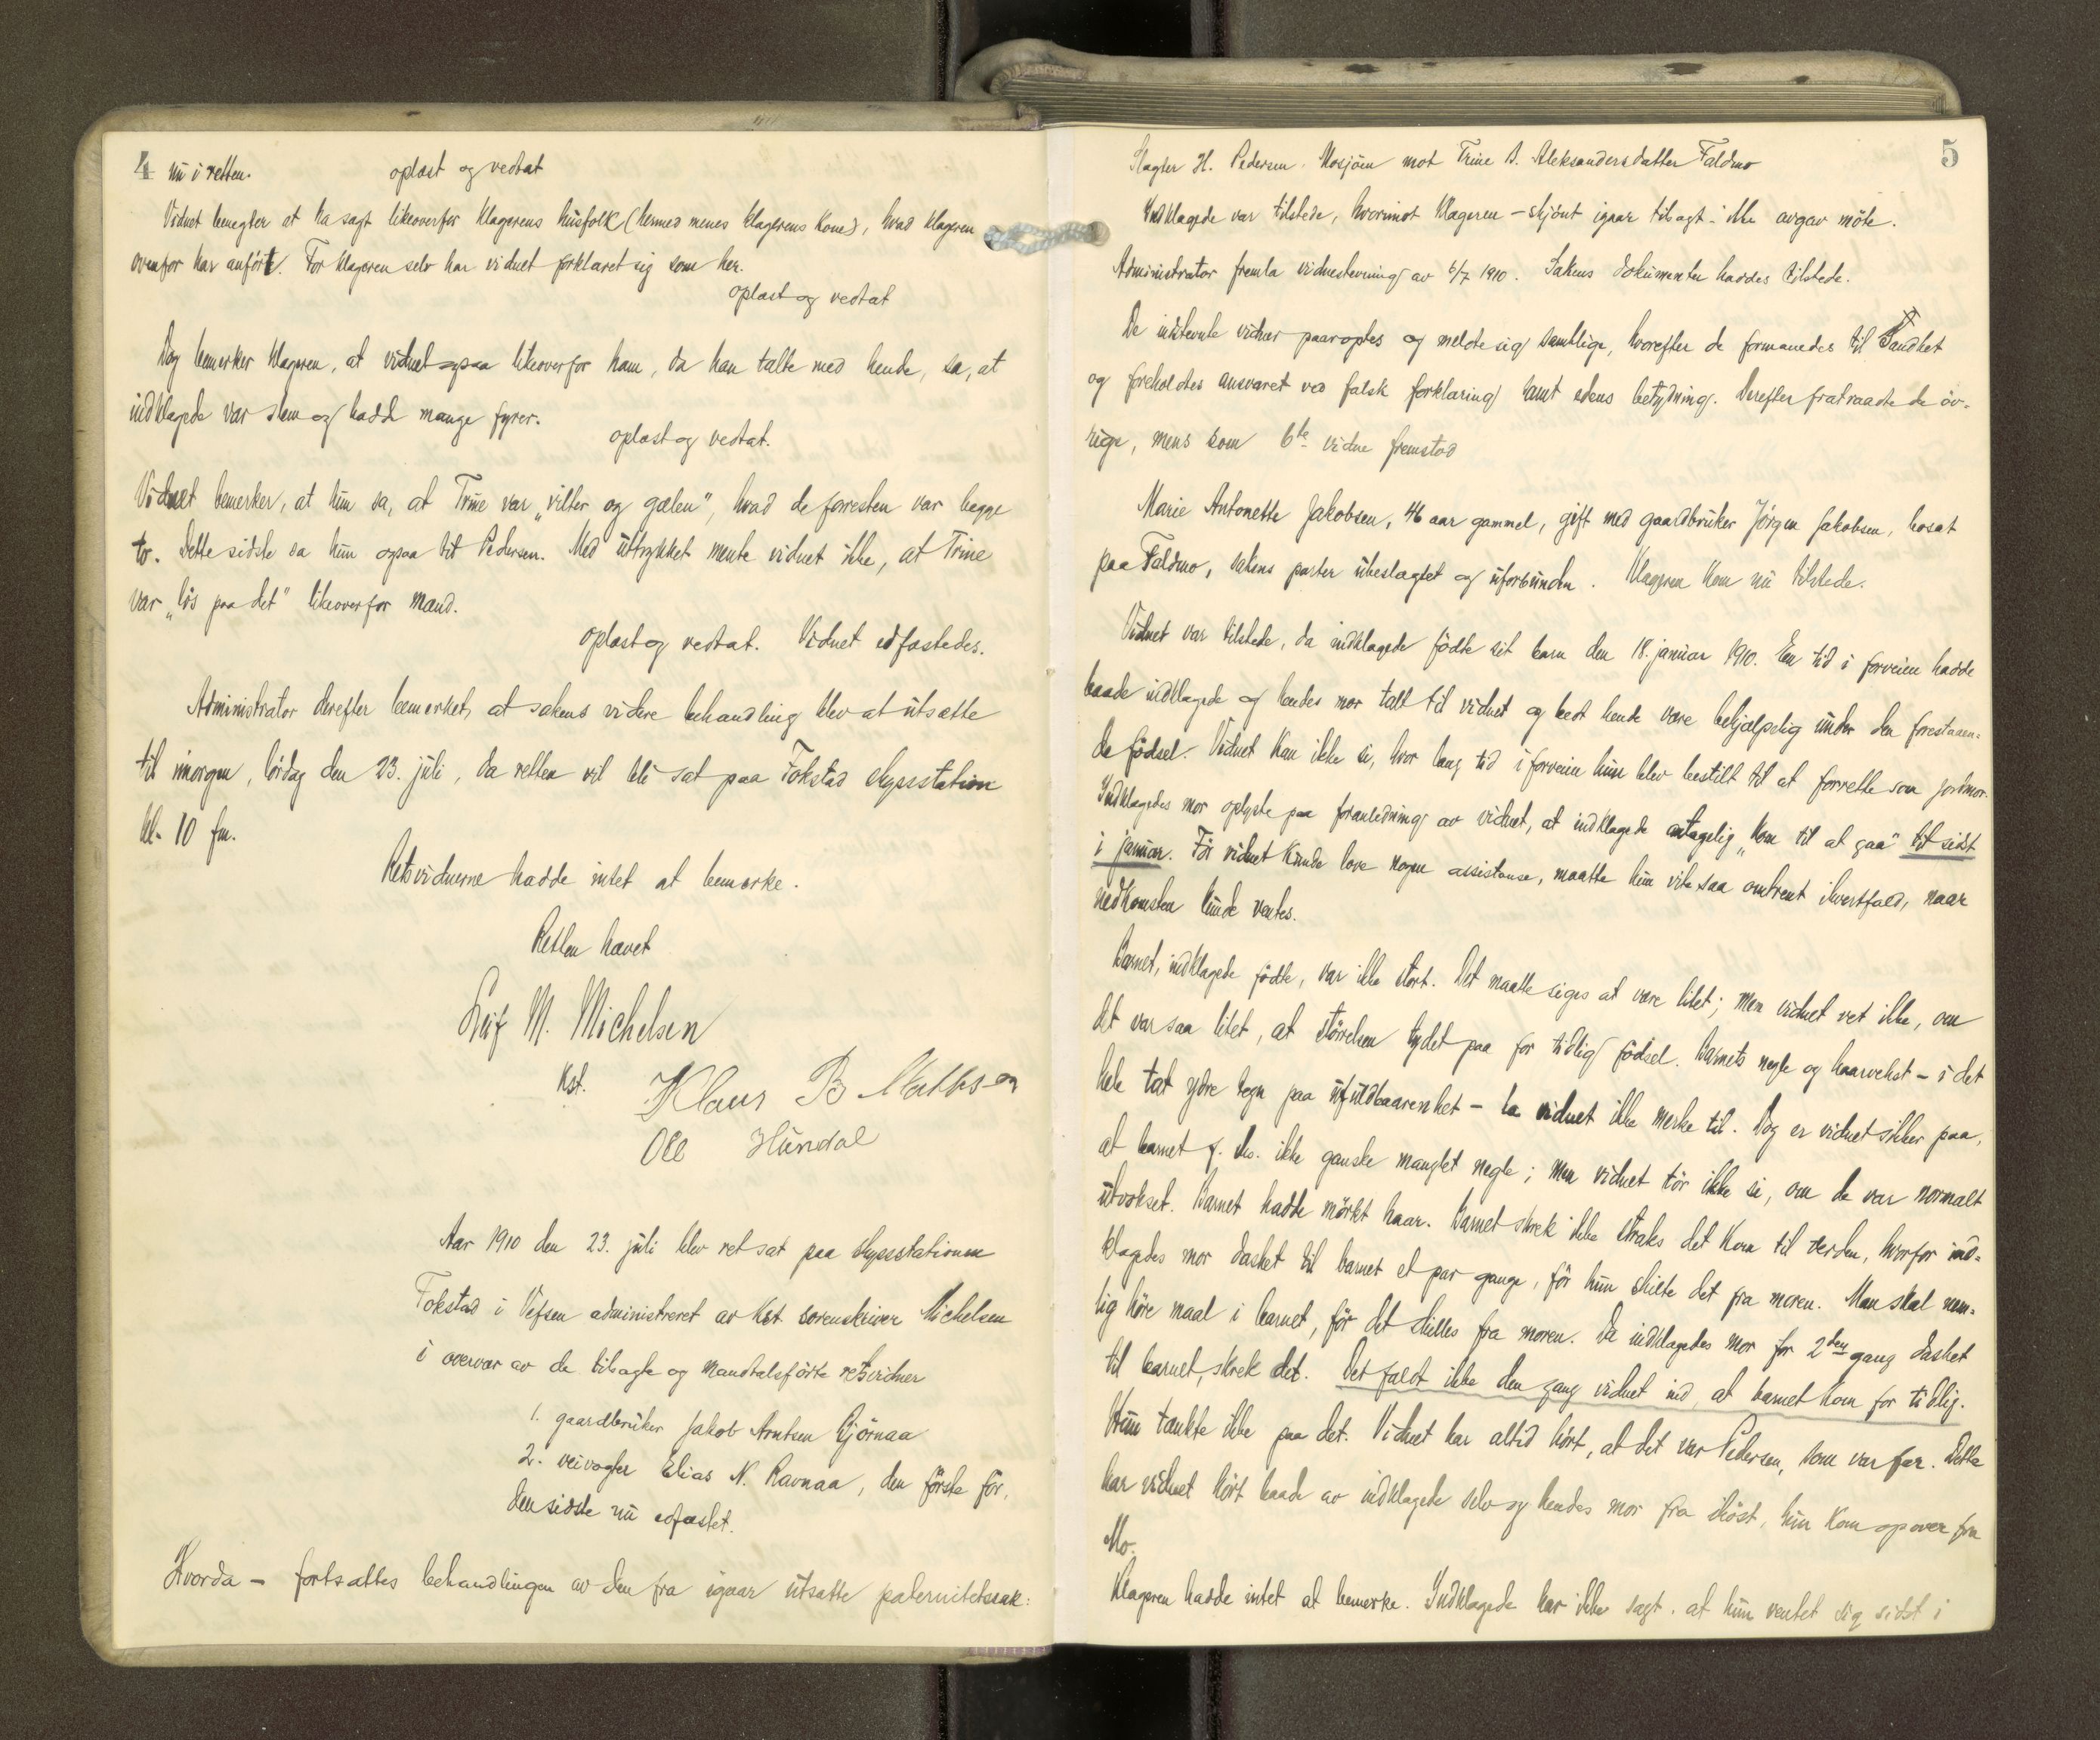 4 nu i retten. oplæst og vedtat
Vidnet benegter at ha sagt likeoverfor klagerens husfolk (hermed menes klagerens kone), hvad klageren
ovenfor har anført. For klageren selv har vidnet forklaret sig som her.
oplæst og vedtat
Dog bemerker klageren, at vidnet ogsaa likeoverfor ham, da han talte med hende, sa, at
indklagede var slem og hadde mange fyrer.
oplæst og vedtat.
Vidnet bemerker, at hun sa, at Trine var „vilter og gælen", hvad de forresten var begge
to. Dette sidste sa hun ogsaa til Pedersen. Med uttrykket mente vidnet ikke, at Trine
var „løs paa det" likeoverfor mænd.
oplæst og vedtat. Vidnet edfæstedes.
Administrator derefter bemerket, at sakens videre behandling blev at utsætte
til imorgen, lørdag den 23. juli, da retten vil bli sat paa Fokstad skysstation
kl. 10 fm.
Retsvidnerne hadde intet at bemerke.
Retten hævet
Leif M. Michelsen
kst.
Klaus B Mathisen
Ole Hundal
Aar 1910 den 23. juli blev ret sat paa skysstationen
Fokstad i Vefsen administreret av kst sorenskriver Michelsen
i overvær av de tilsagte og mandtalsførte retsvidner
1. gaardbruker Jakob Arntsen Gjörnaa
2. veivogter Elias N. Ravnaa, den første før,
den sidste nu edfæstet.
Hvorda – fortsattes behandlingen av den fra igaar utsatte paternitetssak:
5
Slagter H. Pedersen Mosjøen mot Trine B. Aleksandersdatter Faldmo
Indklagede var tilstede, hvorimot klageren – skjønt igaar tilsagt – ikke avgav møte.
Administrator fremla vidnestevning av 6/7 1910. Sakens dokumenter haddes tilstede.
De indstevnte vidner paaroptes og meldte sig samtlige, hvorefter de formanedes til Sandhet
og foreholdtes ansvaret ved falsk forklaring samt edens betydning. Derefter fratraadte de øv-
rige, mens som 6te vidne fremstod
Marie Antonette Jakobsen, 46 aar gammel, gift med gaardbruker Jørgen Jakobsen, bosat
paa Faldmo, sakens parter ubeslægtet og uforbunden. Klageren kom nu tilstede.
Vidnet var tilstede, da indklagede fødte sit barn den 18. januar 1910. En tid i forveien hadde
baade indklagede og hendes mor talt til vidnet og bedt hende være behjælpelig under den forestaaen-
de fødsel. Vidnet kan ikke si, hvor lang tid i forveien hun blev bestilt til at forrette som jordmor.
Indklagedes mor oplyste paa foranledning av vidnet, at indklagede antagelig „kom til at gaa" til sidst
i januar. Før vidnet kunde love nogen assistanse, maatte hun vite saa omtrent ihvertfald, naar
nedkomsten kunde ventes.
Barnet, indklagede fødte, var ikke stort. Det maatte siges at være litet; men vidnet vet ikke, om
det var saa litet, at størrelsen tydet paa for tidlig fødsel. Barnets negle og haarvekst – i det
hele tat ydre tegn paa ufuldbaarenhet – la vidnet ikke merke til. Dog er vidnet sikker paa,
at barnet f. eks. ikke ganske manglet negle; men vidnet tør ikke si, om de var normalt
utvokset. Barnet hadde mörkt haar. Barnet skrek ikke straks det kom til verden, hvorfor ind-
klagedes mor dasket til barnet et par gange, før hun skilte det fra moren. Man skal nem-
lig höre maal i barnet, før det skilles fra moren. Da indklagedes mor for 2den gang dasket
til barnet, skrek det. Det faldt ikke den gang vidnet ind, at barnet kom for tidlig.
Hun tænkte ikke paa det. Vidnet har altid hørt, at det var Pedersen, som var far. Dette
har vidnet hørt baade av indklagede selv og hendes mor fra ihøst, hun kom opover fra
Mo.
Klageren hadde intet at bemerke. Indklagede har ikke sagt, at hun ventet sig sidst i